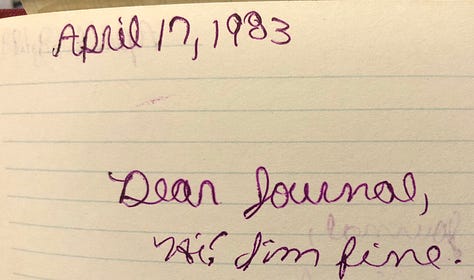 April 17, 1983
Dear Journal,
Hi! I'm fine.